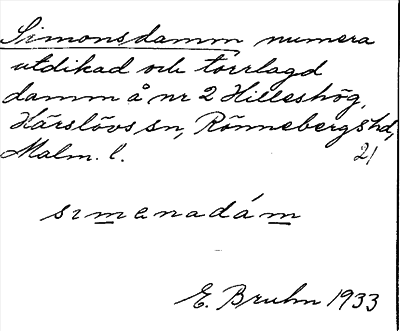 Simonsdamm numera
utdikad och torrlagd
damm å nr 2 Hilleshög,
Härslövs sn, Rönnebergs hd,
Malm. l. 21
simenadám
E. Bruhn 1933